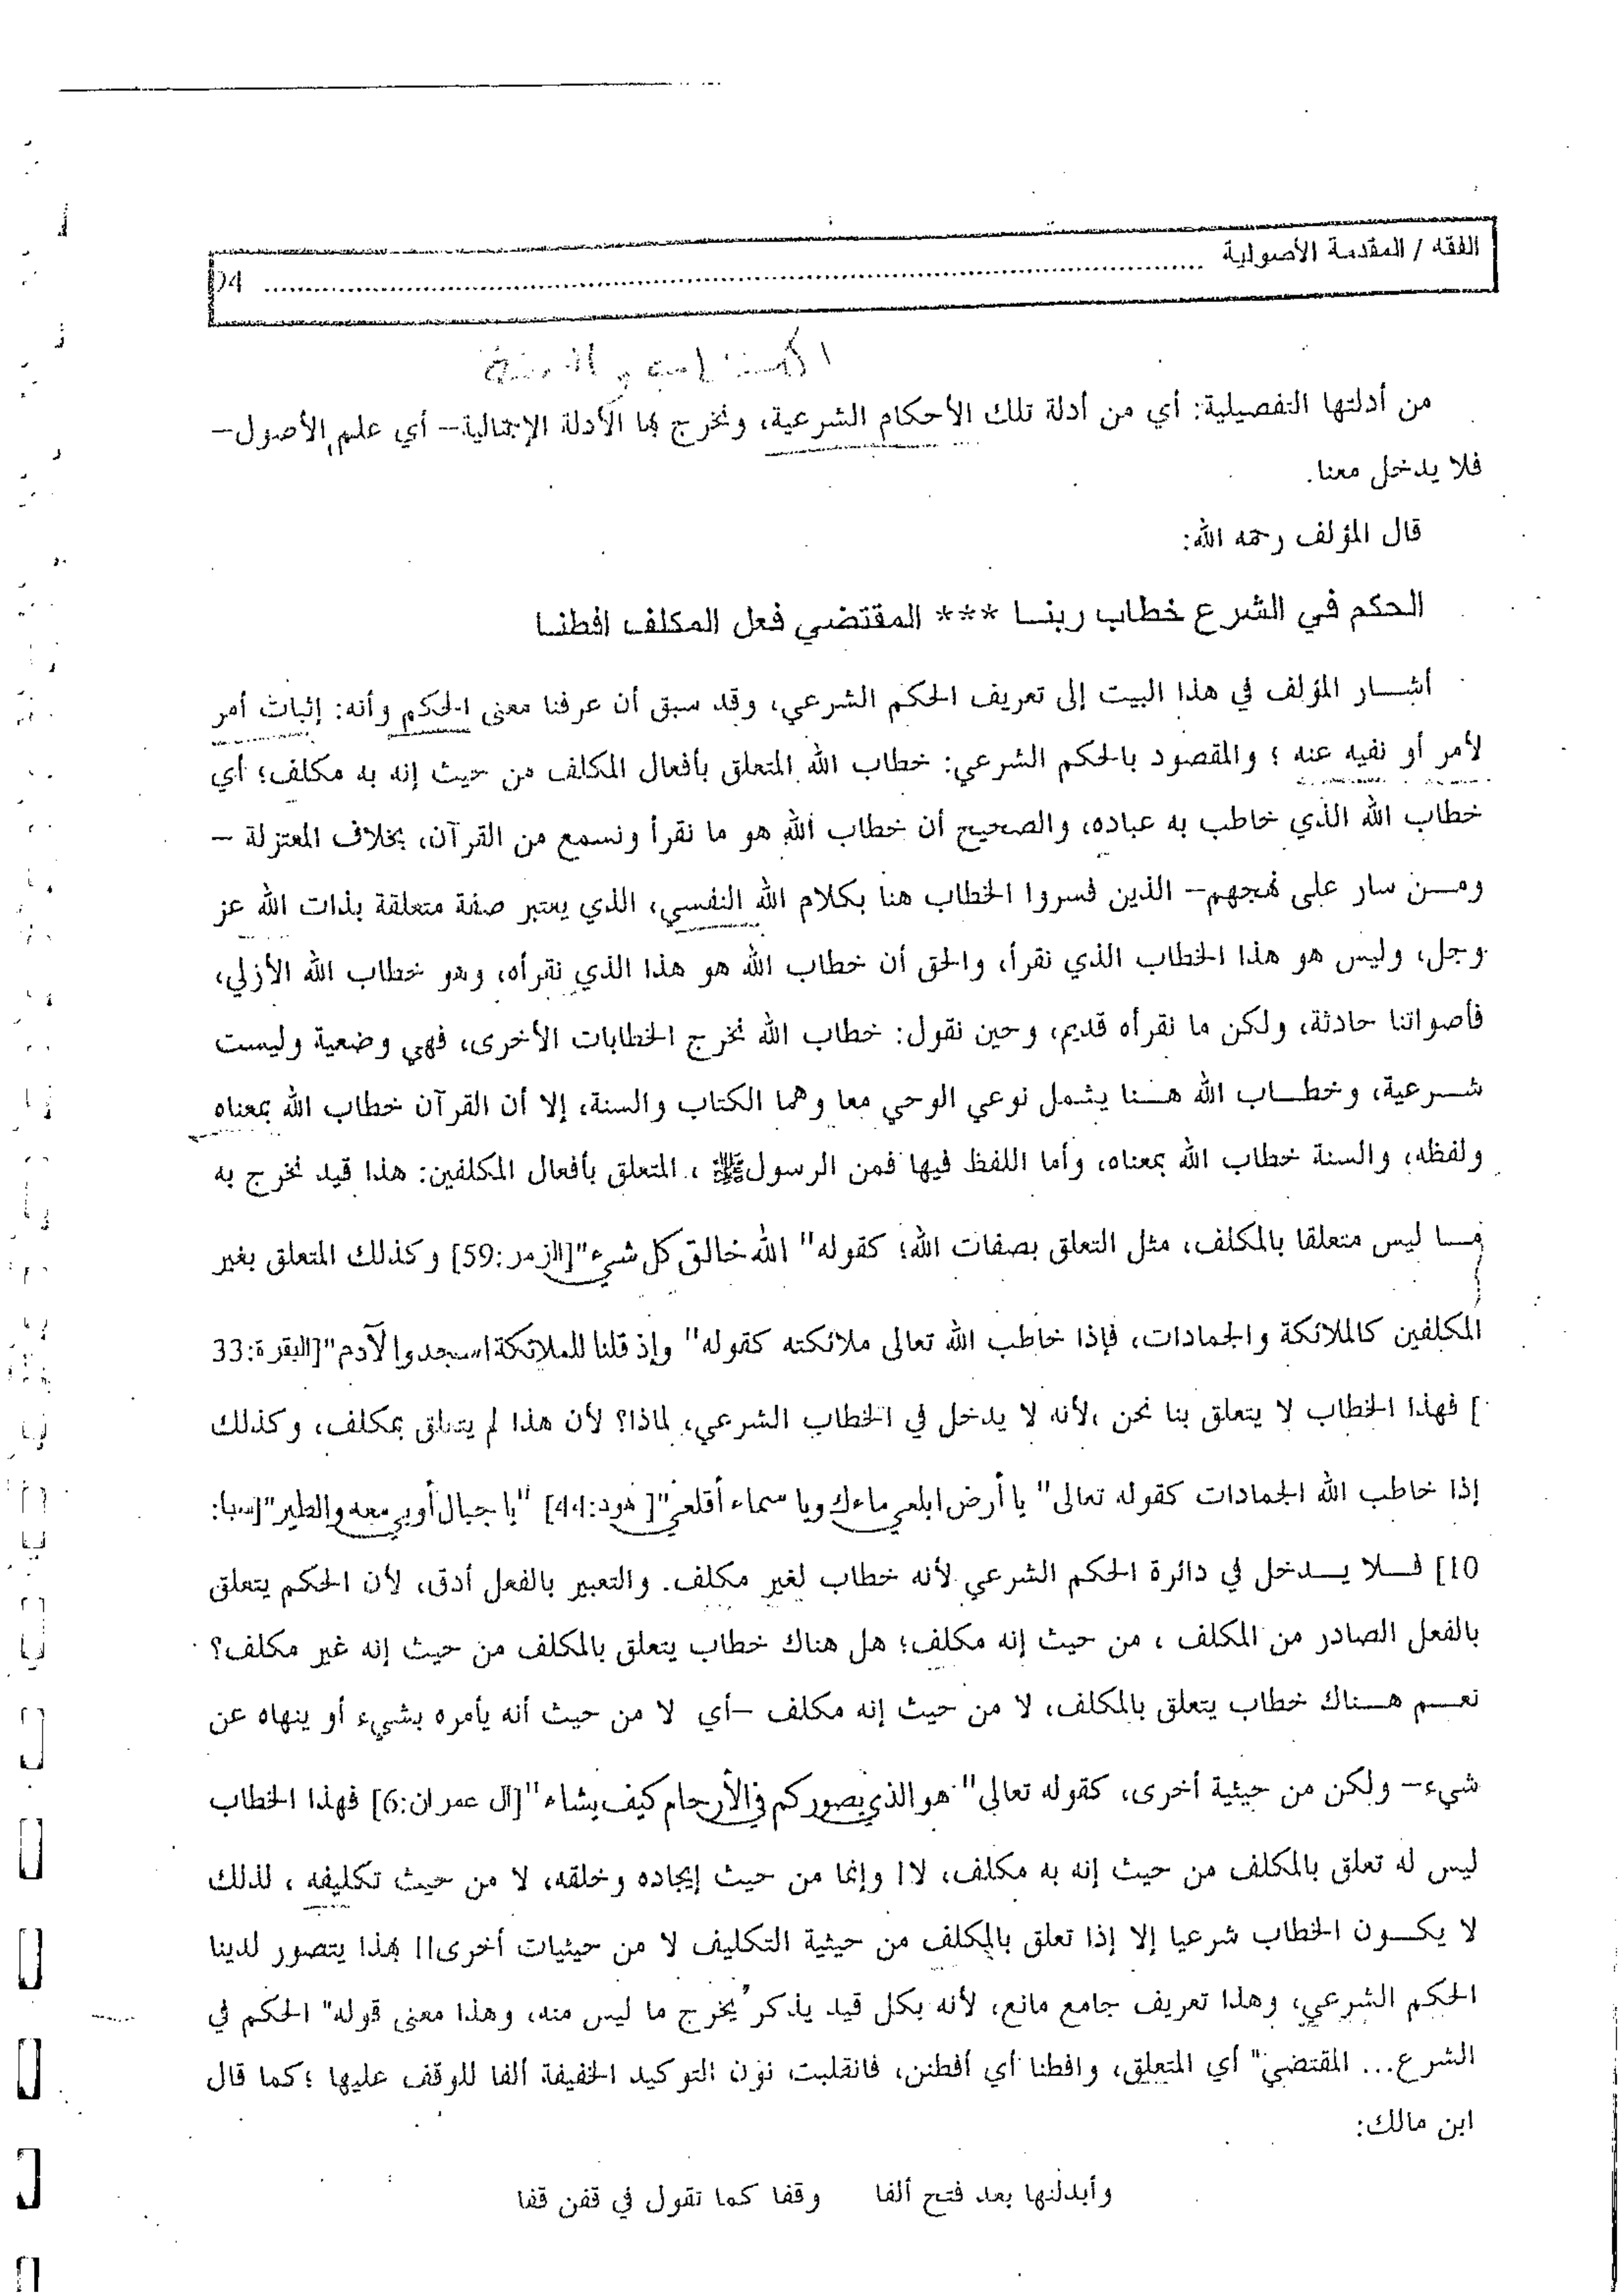 الفقه / المقدمة الأصولية ........................................ 04
من أدلتها التفصيلية: أي من أدلة تلك الأحكام الشرعية، ونخرج بها الأدلة الإجمالية– أي علم الأصول–
فلا يدخل معنا.
قال المؤلف رحمه الله:
الحكم في الشرع خطاب ربنـا *** المقتضي فعل المكلف افطنـا
أشـــار المؤلف في هذا البيت إلى تعريف الحكم الشرعي، وقد سبق أن عرفنا معنى الحكم وأنه: إثبات أمر
لأمر أو نفيه عنه ؛ والمقصود بالحكم الشرعي: خطاب الله المتعلق بأفعال المكلف من حيث إنه به مكلف؛ أي
خطاب الله الذي خاطب به عباده، والصحيح أن خطاب الله هو ما نقرأ ونسمع من القرآن، بخلاف المعتزلة –
ومـــن سار على نهجهم– الذين فسروا الخطاب هنا بكلام الله النفسي، الذي يعتبر صفة متعلقة بذات الله عز
وجل، وليس هو هذا الخطاب الذي نقرأ، والحق أن خطاب الله هو هذا الذي نقرأه، وهو خطاب الله الأزلي،
فأصواتنا حادثة، ولكن ما نقرأه قديم، وحين نقول: خطاب الله نخرج الخطابات الأخرى، فهي وضعية وليست
شـــرعية، وخطـــاب الله هـــنا يشمل نوعي الوحي معا وهما الكتاب والسنة، إلا أن القرآن خطاب الله بمعناه
ولفظه، والسنة خطاب الله بمعناه، وأما اللفظ فيها فمن الرسولﷺ ، المتعلق بأفعال المكلفين: هذا قيد نخرج به
مـــا ليس متعلقا بالمكلف، مثل التعلق بصفات الله؛ كقوله" الله خالق كل شيء"[الزمر:59] وكذلك المتعلق بغير
المكلفين كالملائكة والجمادات، فإذا خاطب الله تعالى ملائكته كقوله" وإذ قلنا للملائكة اسجدوا لآدم"[البقرة:33
] فهذا الخطاب لا يتعلق بنا نحن ،لأنه لا يدخل في الخطاب الشرعي، لماذا؟ لأن هذا لم يتعلق بمكلف، وكذلك
إذا خاطب الله الجمادات كقوله تعالى" يا أرض ابلعي ماءك ويا سماء أقلعي"[هود:44] "يا جبال أوبي معه والطير"[سبا:
10] فـــلا يـــدخل في دائرة الحكم الشرعي لأنه خطاب لغير مكلف. والتعبير بالفعل أدق، لأن الحكم يتعلق
بالفعل الصادر من المكلف ، من حيث إنه مكلف؛ هل هناك خطاب يتعلق بالمكلف من حيث إنه غير مكلف؟
نعـــم هـــناك خطاب يتعلق بالمكلف، لا من حيث إنه مكلف –أي لا من حيث أنه يأمره بشيء أو ينهاه عن
شيء– ولكن من حيثية أخرى، كقوله تعالى" هو الذي يصوركم في الأرحام كيف يشاء"[آل عمران:6] فهذا الخطاب
ليس له تعلق بالمكلف من حيث إنه به مكلف، لا! وإنما من حيث إيجاده وخلقه، لا من حيث تكليفه ، لذلك
لا يكـــون الخطاب شرعيا إلا إذا تعلق بالمكلف من حيثية التكليف لا من حيثيات أخرى!! بهذا يتصور لدينا
الحكم الشرعي، وهذا تعريف جامع مانع، لأنه بكل قيد يذكر يخرج ما ليس منه، وهذا معنى قوله" الحكم في
الشرع... المقتضي" أي المتعلق، وافطنا أي أفطنن، فانقلبت نون التوكيد الخفيفة ألفا للوقف عليها ؛كما قال
ابن مالك:
وأبدلنها بعد فتح ألفا وقفا كما تقول في قفن قفا